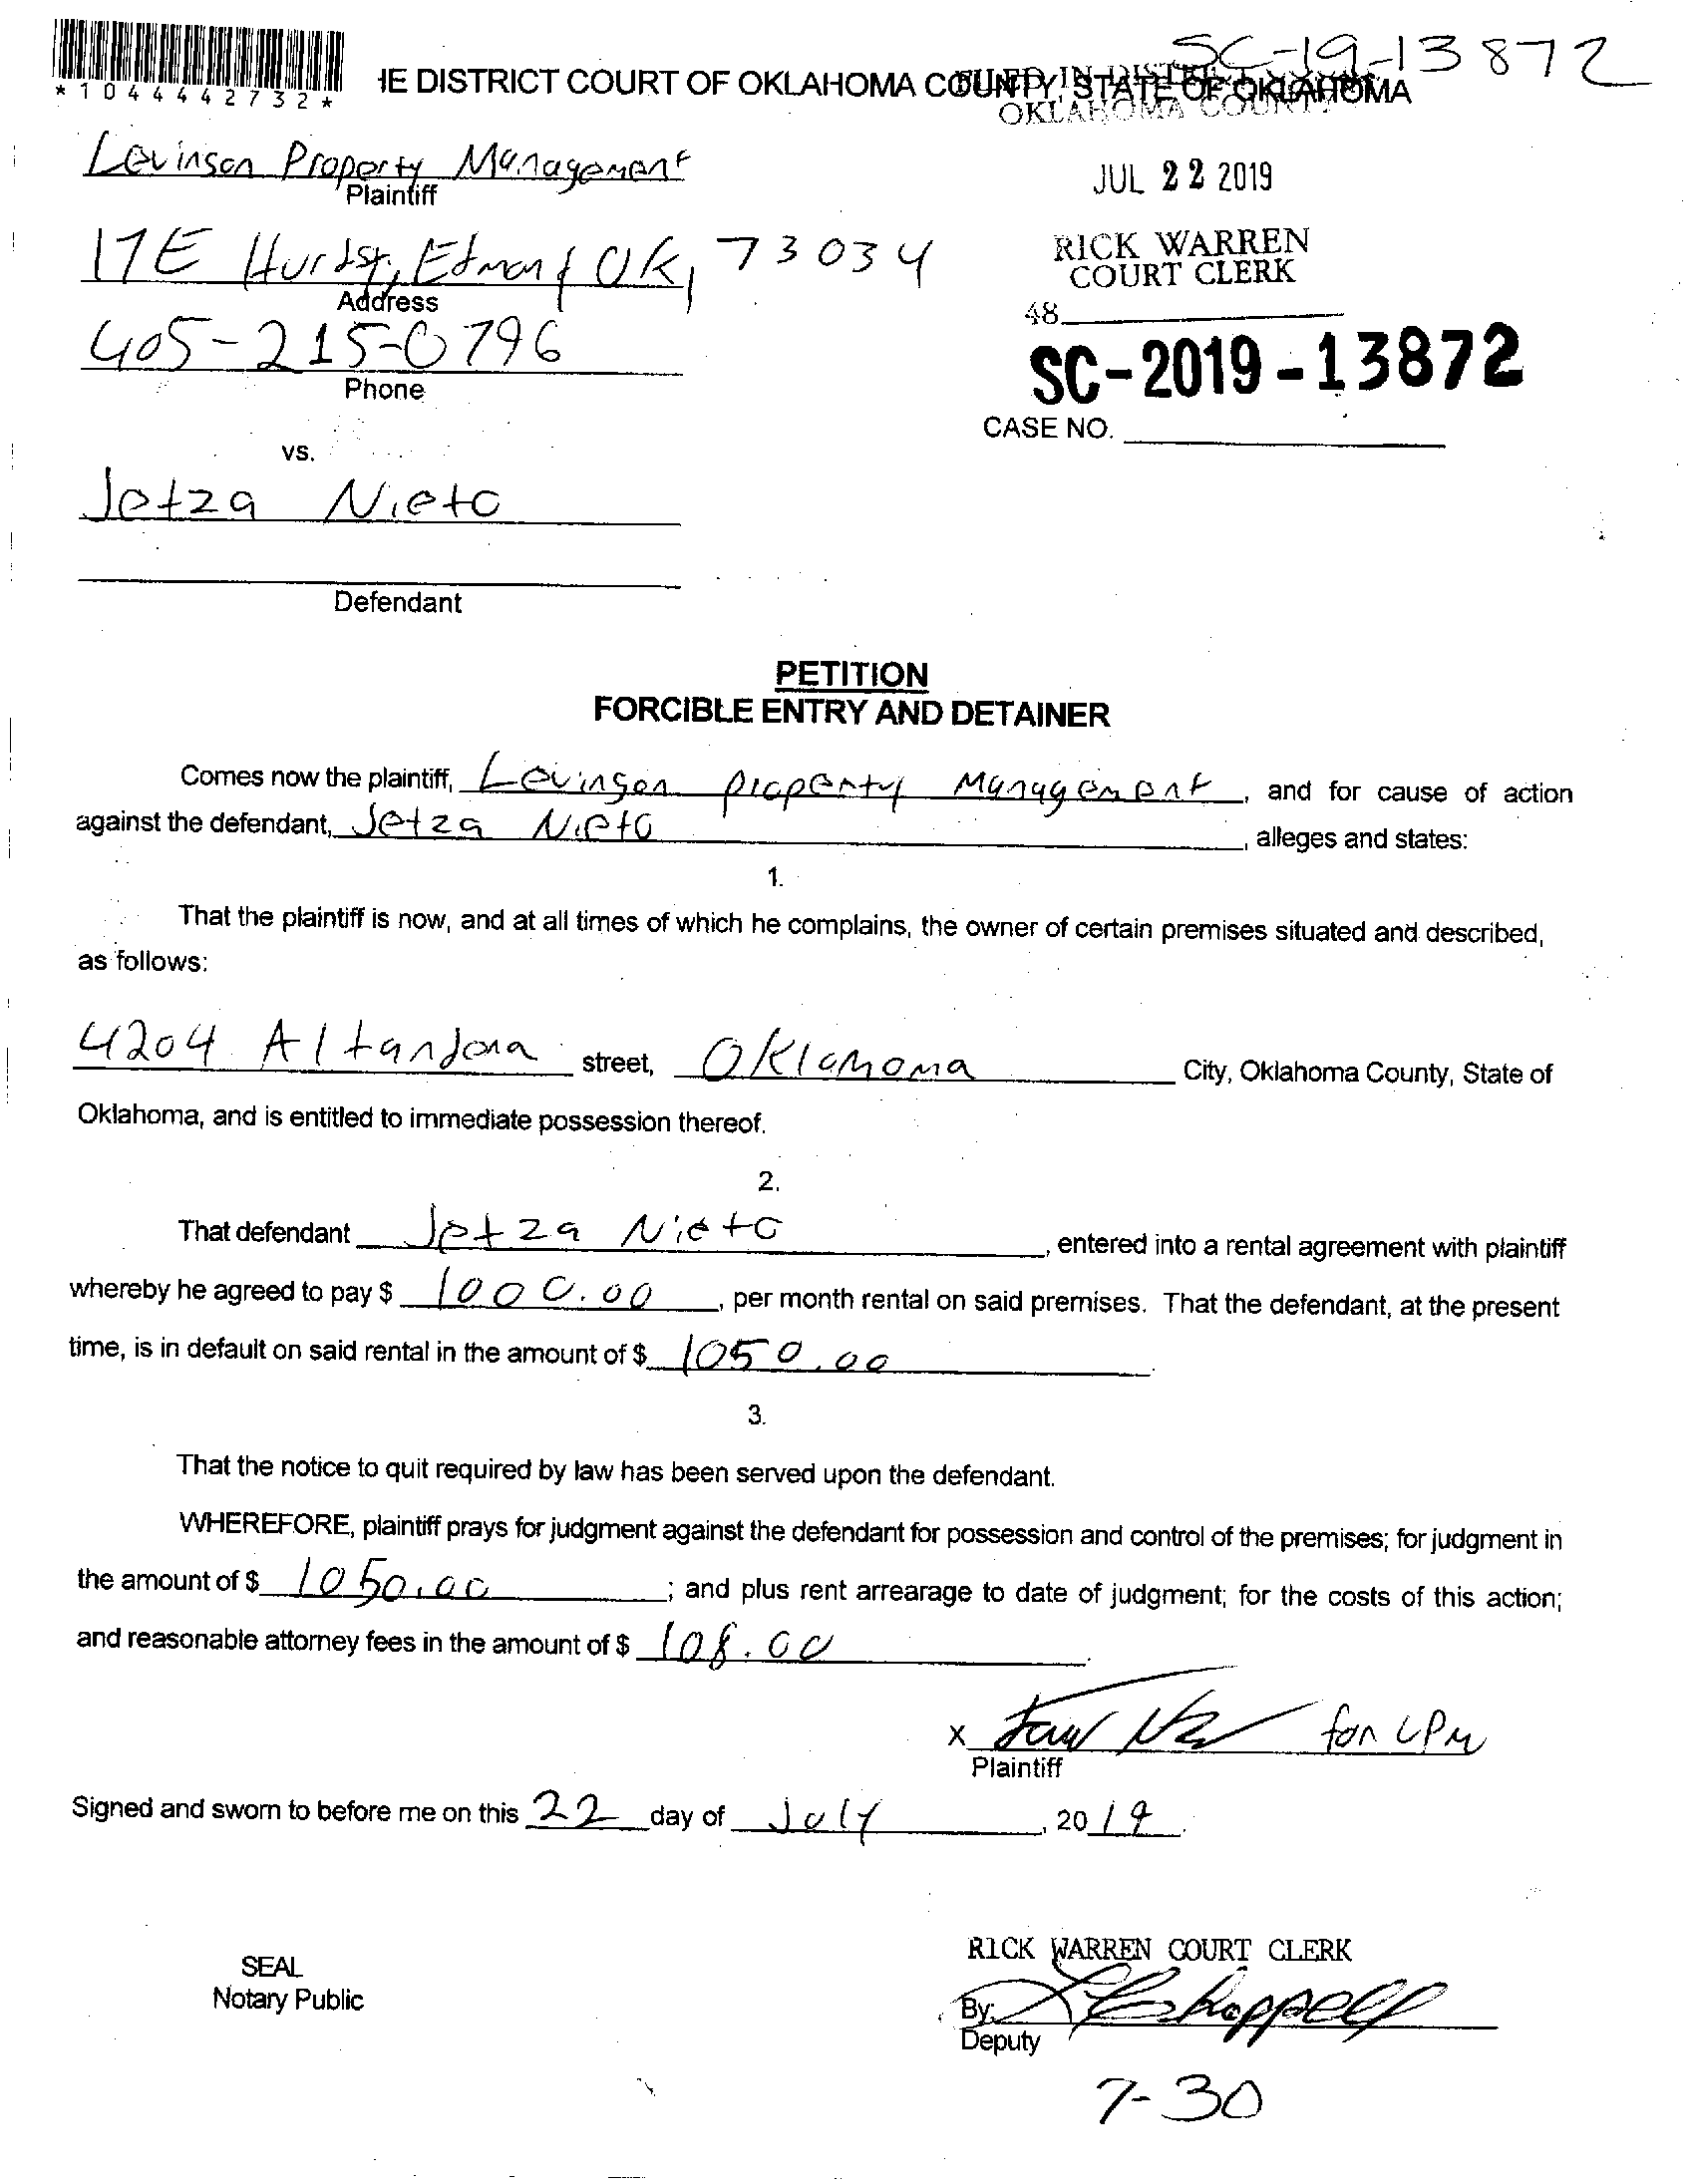 SC-19-13872
*1044442732*
HE DISTRICT COURT OF OKLAHOMA COUNTY, STATE OF OKLAHOMA
FILED IN DISTRICT COURT
OKLAHOMA COUNTY
Levinson Property Management
Plaintiff
JUL 22 2019
17E Hurdst, Edmond OK, 73034
Address
RICK WARREN
COURT CLERK
405-215-0796
Phone
48
SC-2019-13872
CASE NO.
vs.
Jetza Nieto
Defendant
PETITION
FORCIBLE ENTRY AND DETAINER
Comes now the plaintiff, Levinson property Management, and for cause of action
against the defendant, Jetza Nieto, alleges and states:
1.
That the plaintiff is now, and at all times of which he complains, the owner of certain premises situated and described,
as follows:
4204 Altandona street, Oklahoma City, Oklahoma County, State of
Oklahoma, and is entitled to immediate possession thereof.
2.
That defendant Jetza Nieto, entered into a rental agreement with plaintiff
whereby he agreed to pay $ 1000.00, per month rental on said premises. That the defendant, at the present
time, is in default on said rental in the amount of $ 1050.00.
3.
That the notice to quit required by law has been served upon the defendant.
WHEREFORE, plaintiff prays for judgment against the defendant for possession and control of the premises; for judgment in
the amount of $ 1050.00; and plus rent arrearage to date of judgment; for the costs of this action;
and reasonable attorney fees in the amount of $ 108.00.
X for LPM
Plaintiff
Signed and sworn to before me on this 22 day of July, 2019.
SEAL
Notary Public
RICK WARREN COURT CLERK
By:
Deputy
7-30